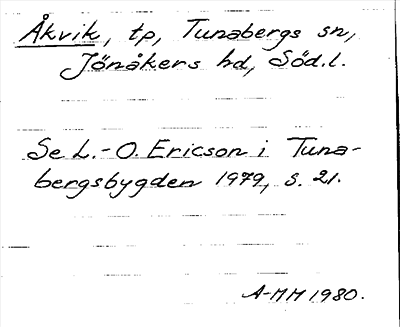 Åkvik, tp, Tunabergs sn,
Jönåkers hd, Söd.l.
Se L.-O. Ericson i Tuna-
bergsbygden 1979, s. 21.
A-MM 1980.